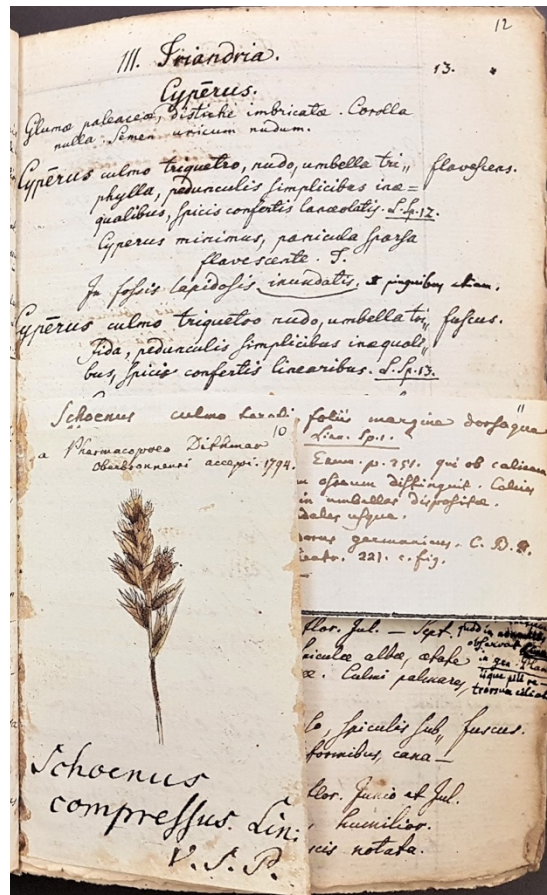 12
III. Triandria.
13.
Cypērus.
Glumæ paleaceæ, distiche imbricatæ. Corolla
nulla. Semen unicum nudum.
Cypērus culmo triquetro, nudo, umbella tri„ flavescens.
phylla, pedunculis simplicibus inæ=
qualibus, spicis confertis lanceolatis. L. Sp. 12.
Cyperus minimus, panicula sparsa
flavescente. T.
In fossis lapidosis inundatis, & pinguibus etiam.
Cypērus culmo triquetro nudo, umbella tri„ fuscus.
fida, pedunculis simplicibus inæquali„
bus, spicis confertis linearibus. L. Sp. 13.
Schoenus culmo tereti foliis margine dorsoque
Linn. Sp. 1.
10
a Pharmacopoeo Dittmar
Oberbronnensi accepi. 1794.
Enum. p. 251. qui ob calicem
osseum distinguit. Calices
in umbellas dispositæ.
usque.
germanicus. C. B. P.
221. c. fig.
flor. Jul. — Sept.
albæ, ætate
Culmi palmares,
spiculis sub„ fuscus.
formibus, cana—
flor. Junio et Jul.
humilior.
notata.
Schoenus
compressus. Lin:
V. S. P.